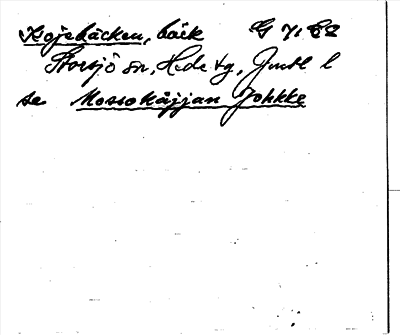 Kojebäcken, bäck G 71 C2
Storsjö sn, Hede tg, Jmtl l
se Mossokåjjan Johkke